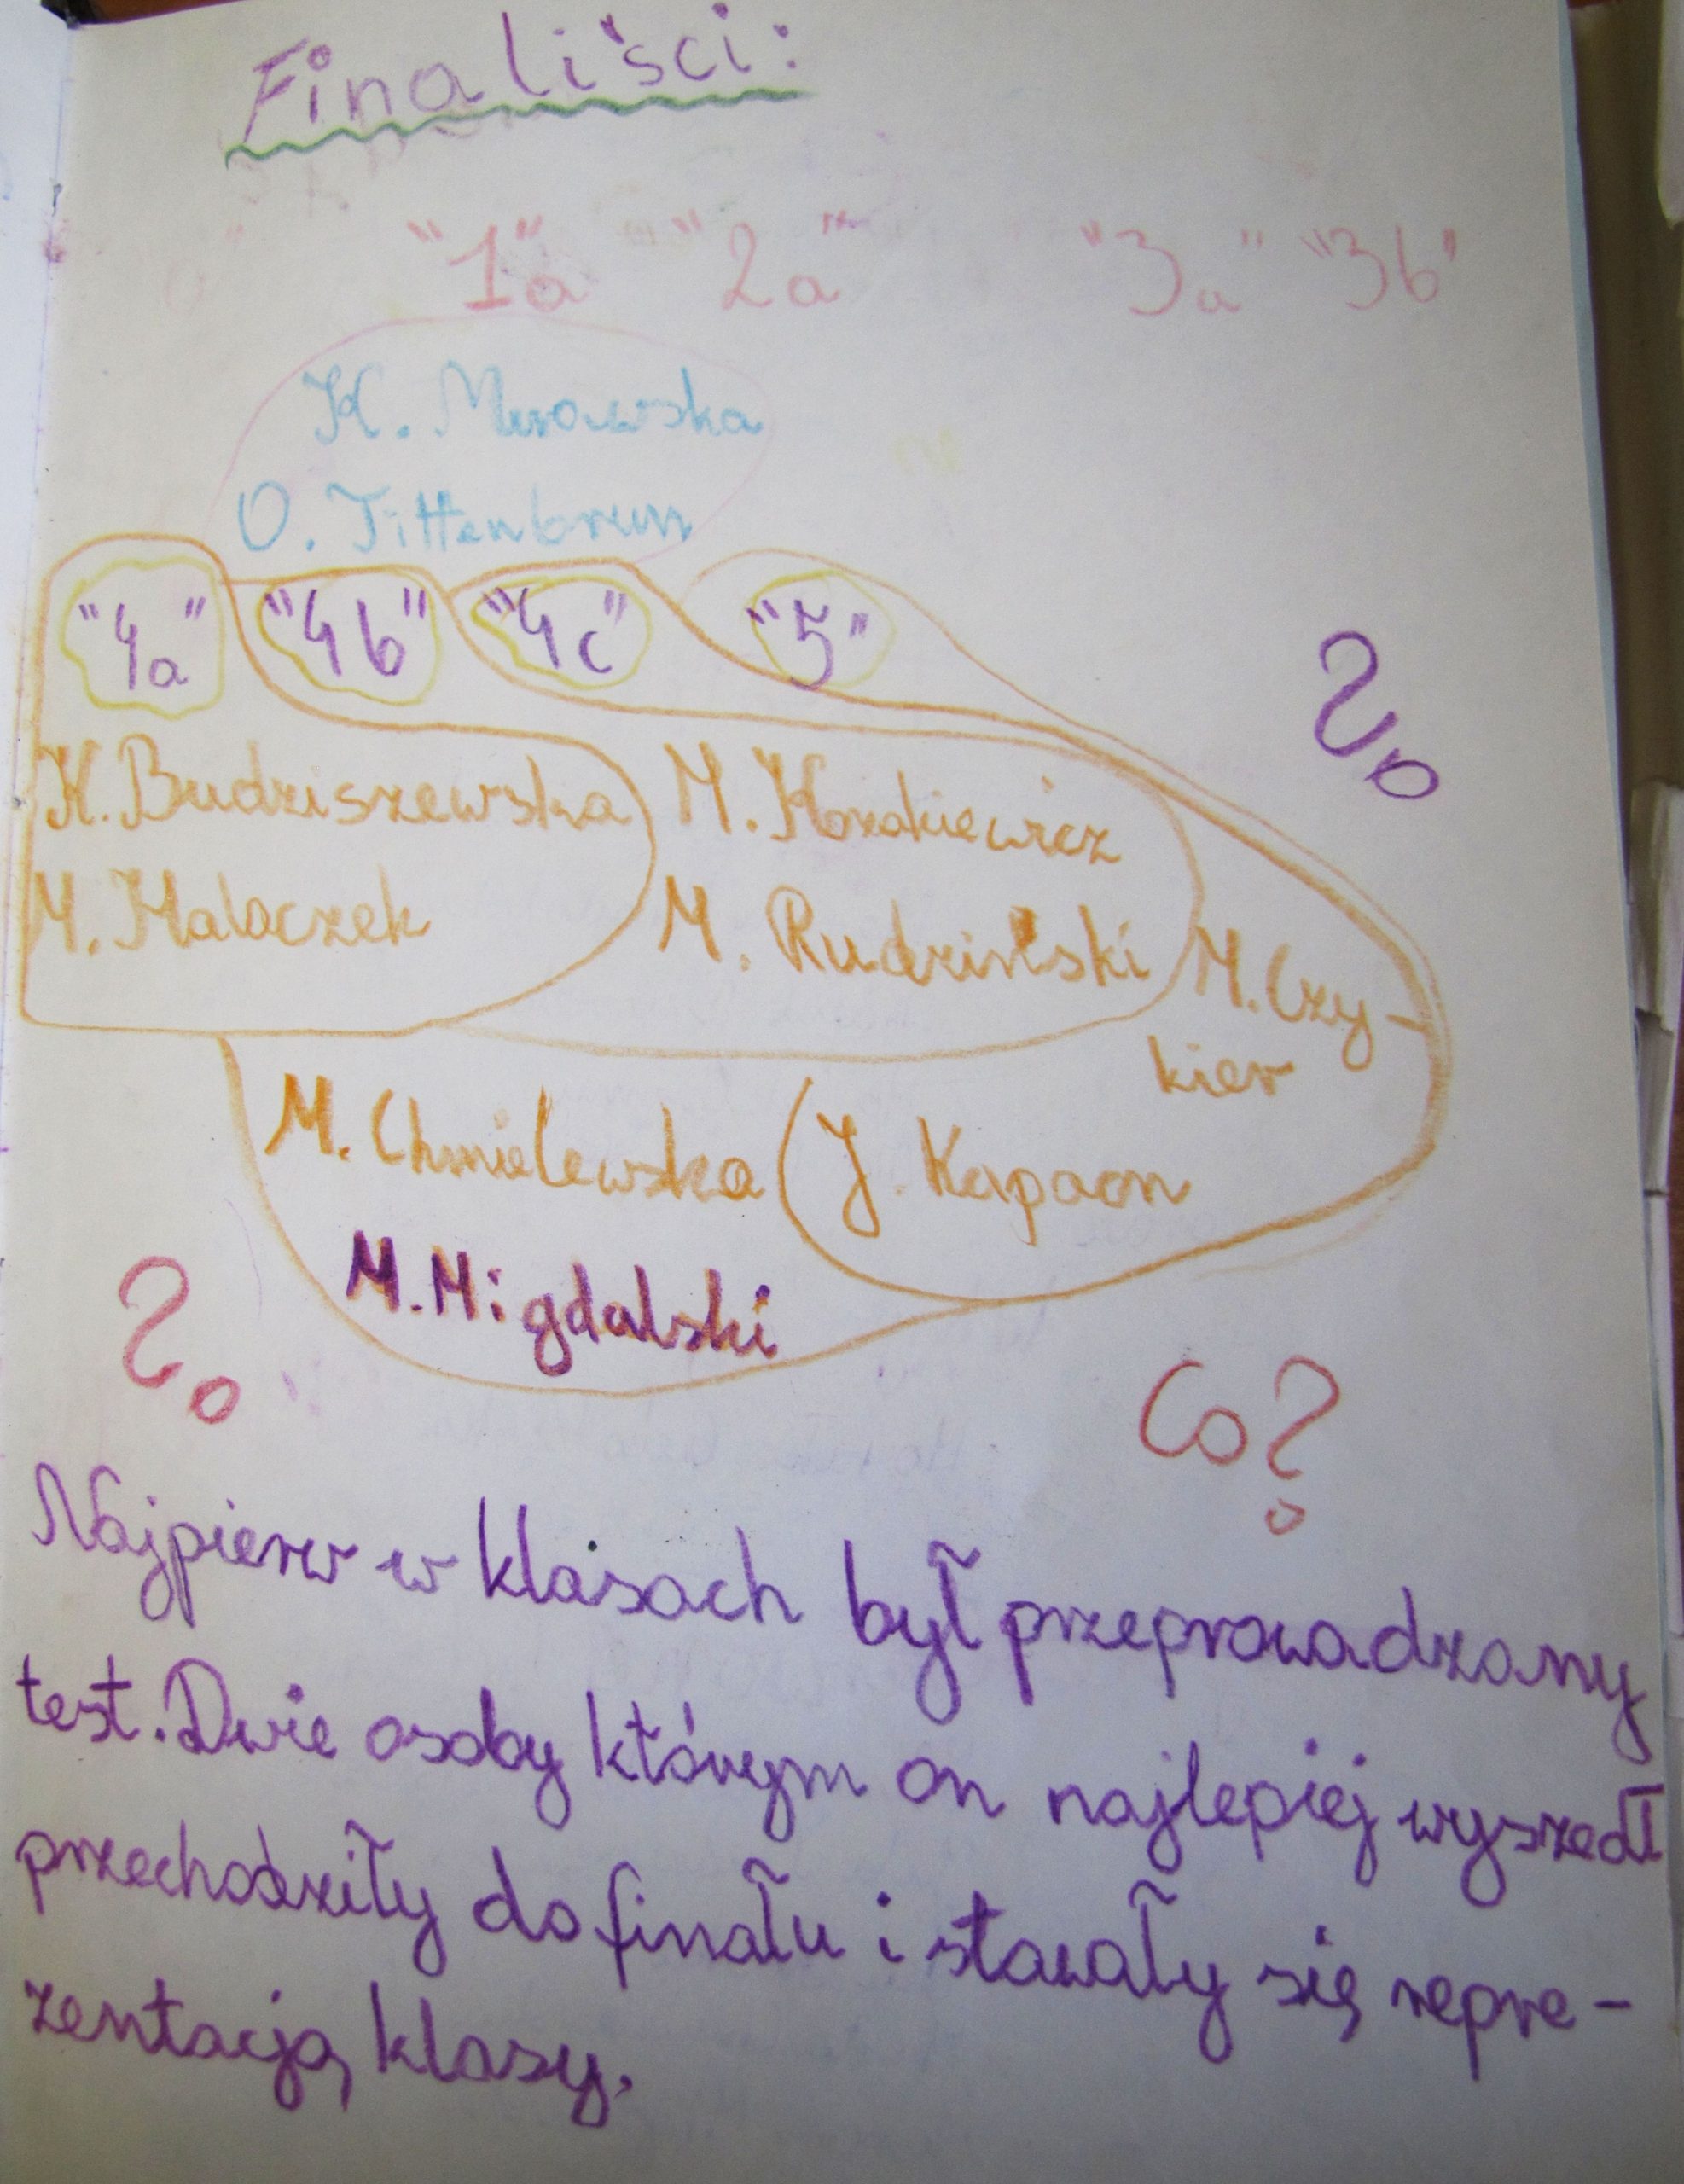 Finaliści:
"1a" "2a" "3a" "3b"
K. Murowska
O. Tittenbrun
"4a" "4b" "4c" "5"
?
K. Budziszewska M. Kozakiewicz
M. Malaczek M. Rudziński M. Czy-
kier
M. Chmielewska J. Kapaon
M. Migdalski
? Co?
Najpierw w klasach był przeprowadzany
test. Dwie osoby którym on najlepiej wyszedł
przechodziły do finału i stawały się repre-
zentacją klasy.